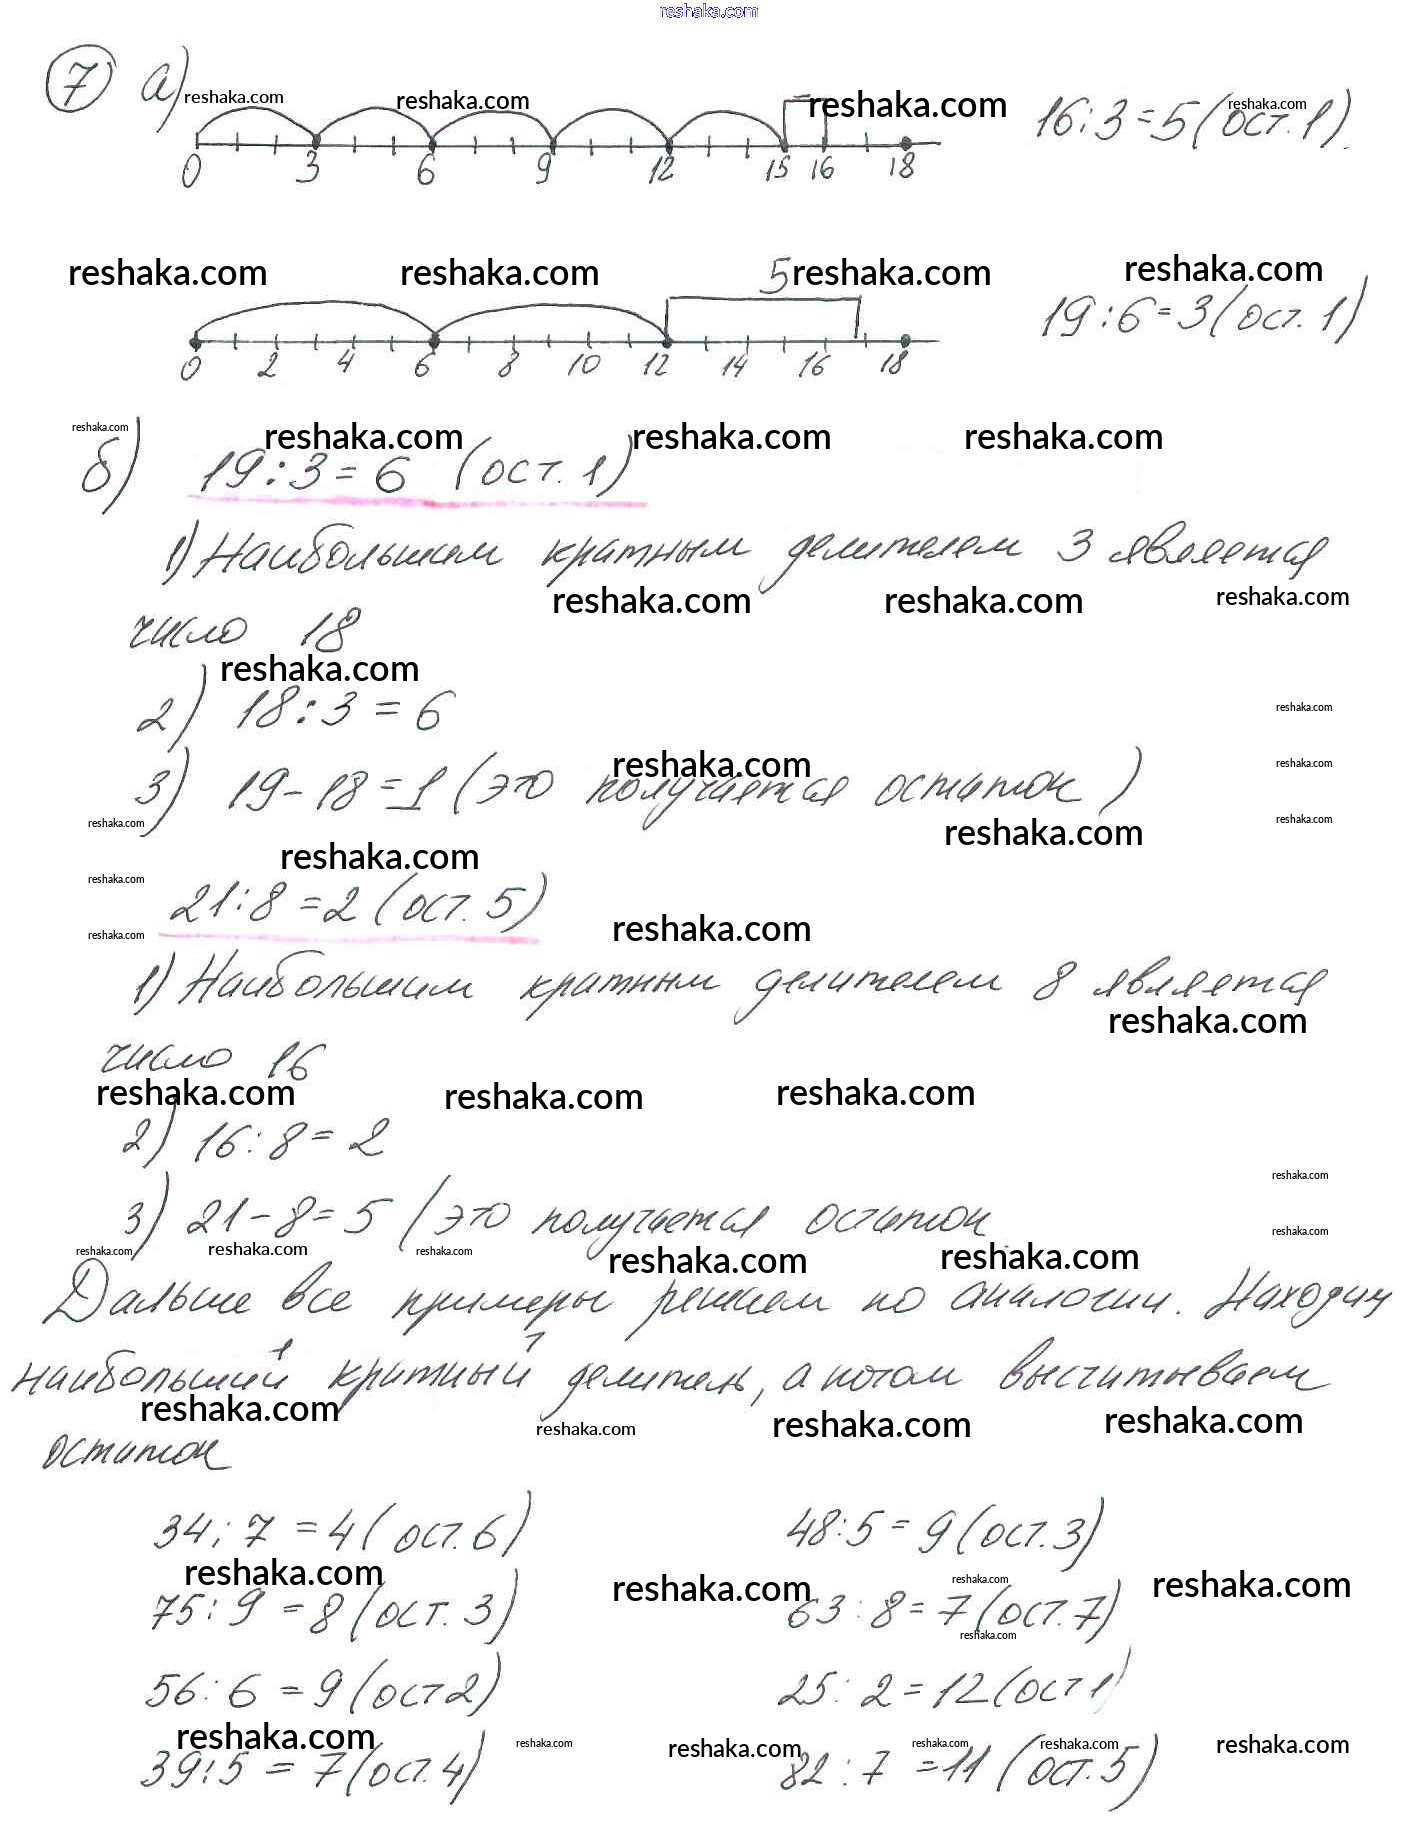 reshaka.com
7 а) reshaka.com reshaka.com reshaka.com 16:3=5(ост.1). reshaka.com
0 3 6 9 12 15 16 18
reshaka.com reshaka.com 5 reshaka.com reshaka.com
19:6=3(ост.1)
0 2 4 6 8 10 12 14 16 18
reshaka.com reshaka.com reshaka.com reshaka.com
б) 19:3=6 (ост.1)
1) Наибольшим кратным делителем 3 является
reshaka.com reshaka.com reshaka.com
число 18
reshaka.com
2) 18:3=6
reshaka.com
3) 19-18=1 (это получается остаток)
reshaka.com reshaka.com
reshaka.com reshaka.com reshaka.com
reshaka.com
reshaka.com
21:8=2 (ост. 5)
reshaka.com reshaka.com
1) Наибольшим кратным делителем 8 является
reshaka.com
число 16
reshaka.com reshaka.com reshaka.com
2) 16:8=2
reshaka.com
3) 21-8=5 (это получается остаток
reshaka.com
reshaka.com reshaka.com reshaka.com reshaka.com reshaka.com
Дальше все примеры решаем по аналогии. Находим
наибольший кратный делитель, а потом высчитываем
reshaka.com reshaka.com reshaka.com reshaka.com
остаток
34:7=4(ост.6) 48:5=9(ост.3)
reshaka.com reshaka.com reshaka.com reshaka.com
75:9=8(ост.3) 63:8=7(ост.7)
reshaka.com
56:6=9(ост2) 25:2=12(ост1)
reshaka.com reshaka.com reshaka.com reshaka.com reshaka.com reshaka.com
39:5=7(ост.4) 82:7=11(ост.5)